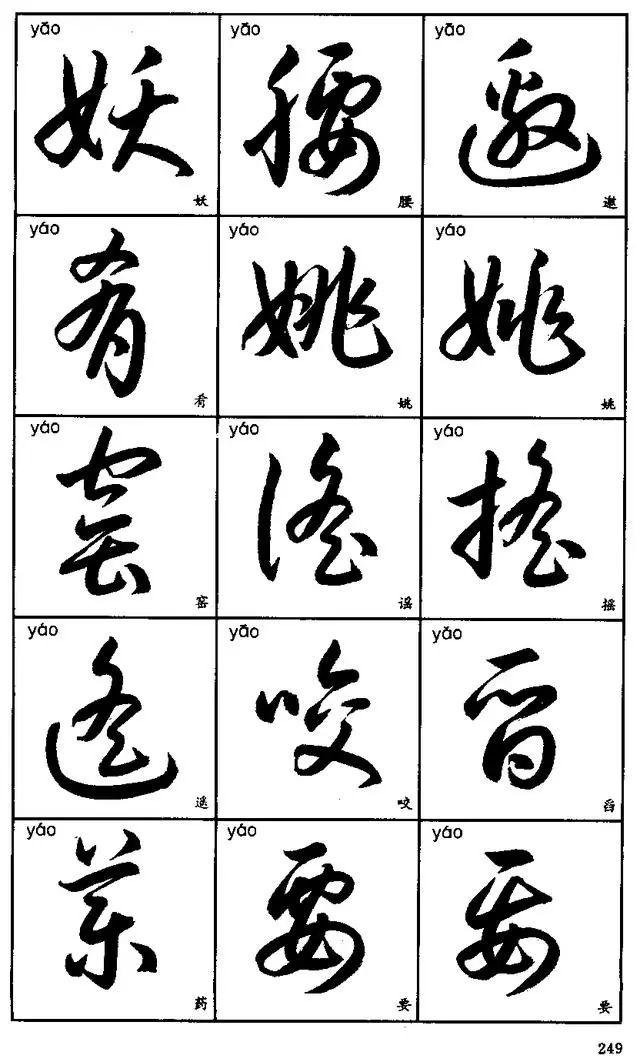 yǎo yǎo yǎo
妖 腰 邀
妖 腰 邀
yáo yáo yáo
肴 姚 姚
肴 姚 姚
yáo yáo yáo
窑 谣 摇
窑 谣 摇
yáo yǎo yǎo
遥 咬 舀
遥 咬 舀
yáo yáo yáo
药 要 要
药 要 要
249